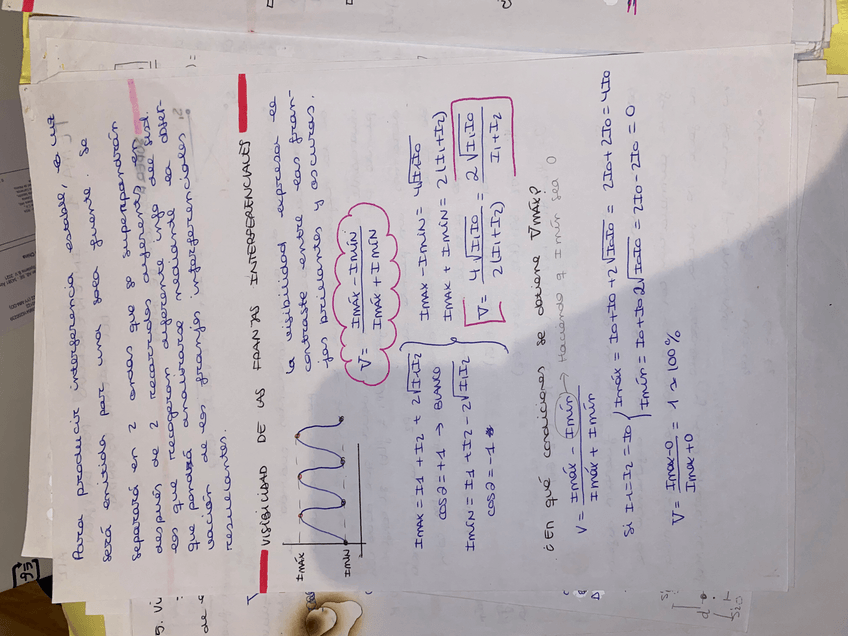 Para producir interferencia estable, la luz
será emitida por una sola fuente. Se
separará en 2 ondas que se superpondrán
después de 2 recorridos diferentes en
los que recogerán diferente info del sist.
que podrá analizarse mediante la obser-
vación de las franjas interferenciales
resultantes.
VISIBILIDAD DE LAS FRANJAS INTERFERENCIALES
la visibilidad expresa el
contraste entre las fran-
jas brillantes y oscuras.
Imáx
Imín
V = Imáx - Imín / Imáx + Imín
Imáx = I1 + I2 + 2√I1I2
cos∂ = +1 → BLANCO
Imín = I1 + I2 - 2√I1I2
cos∂ = -1
Imáx - Imín = 4√I1I0
Imáx + Imín = 2(I1+I2)
V = 4√I1I0 / 2(I1+I2) = 2√I1I0 / I1+I2
¿En qué condiciones se obtiene Vmáx?
V = Imáx - Imín / Imáx + Imín → Haciendo q Imín sea 0
Si I1=I2=I0 { Imáx = I0+I0+2√I0I0 = 2I0+2I0 = 4I0
Imín = I0+I0 2√I0I0 = 2I0-2I0 = 0
V = Imáx-0 / Imáx+0 = 1 ≈ 100%